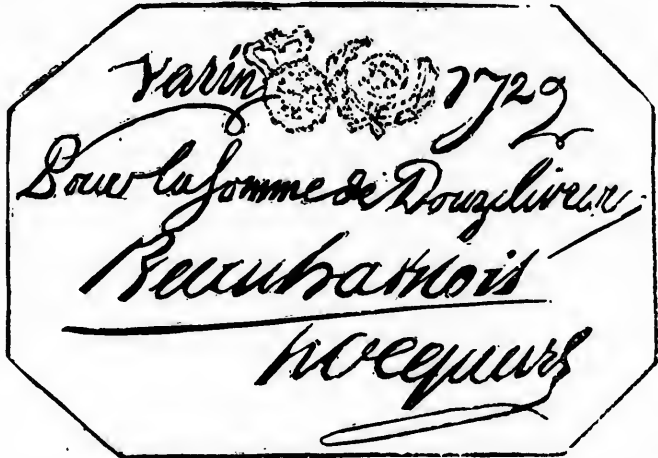 Varin 1729
Pour la Somme de Douze livres
Beauharnois
hocquart